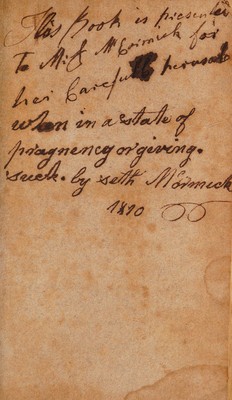 This Book is presented
To Miss McCormick for
her Carefull perusal
when in a state of
pragnency or giving.
suck. by seth McCormick
1810